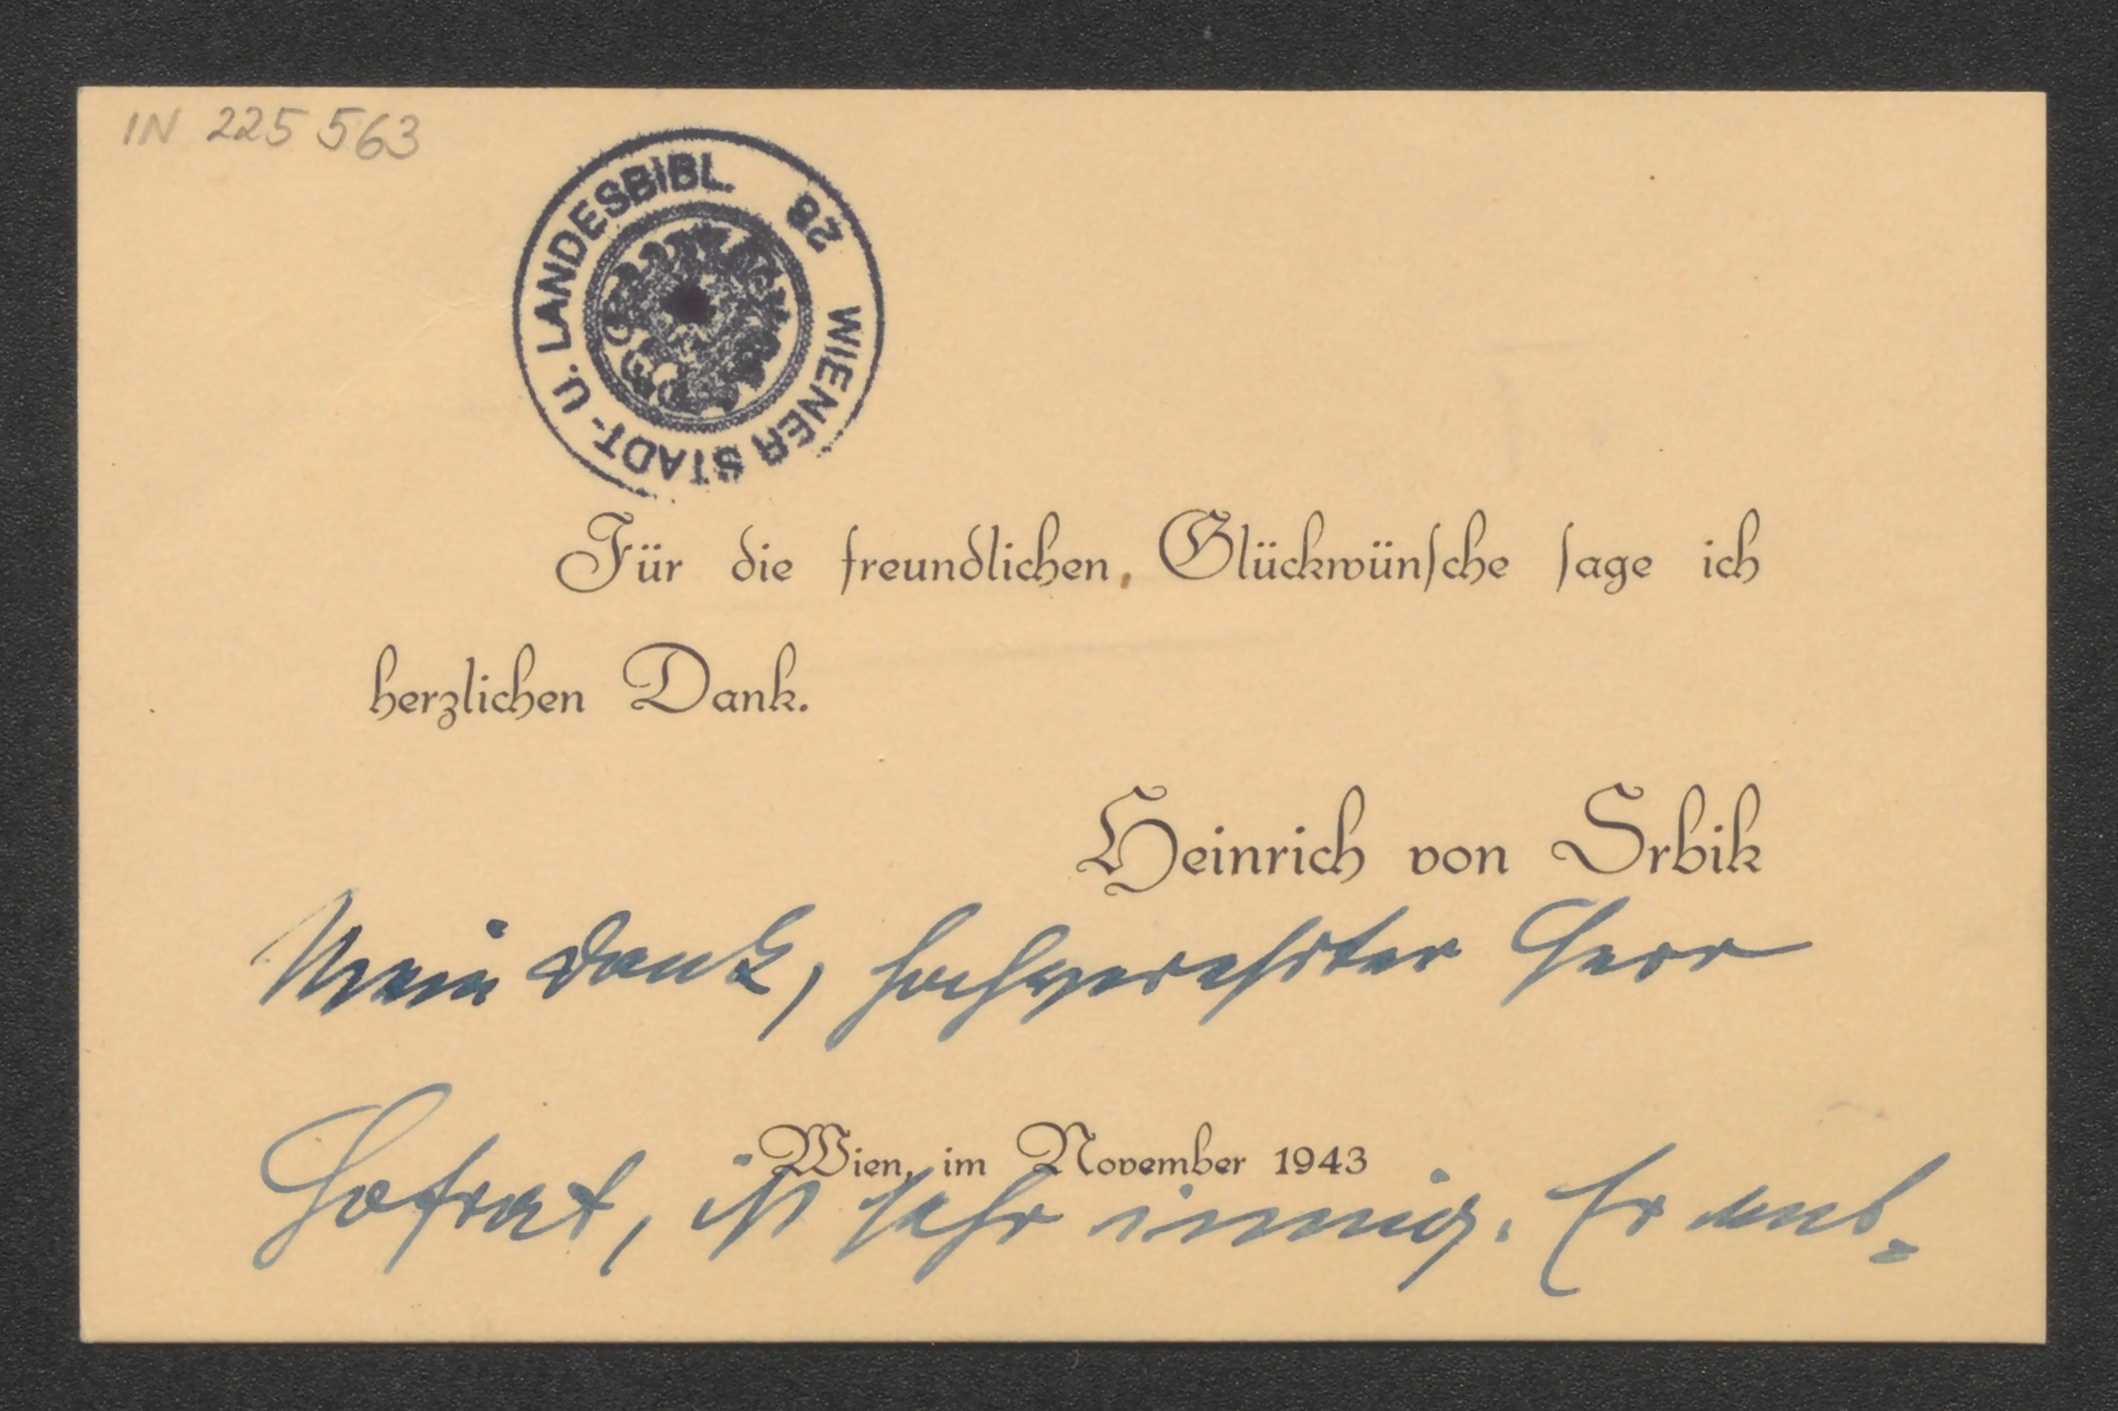 IN 225 563
WIENER STADT- U. LANDESBIBL. 28
Für die freundlichen Glückwünsche sage ich
herzlichen Dank.
Heinrich von Srbik
Mein Dank, hochverehrter Herr
Wien, im November 1943
Hofrat, ist sehr innig. Er ent-